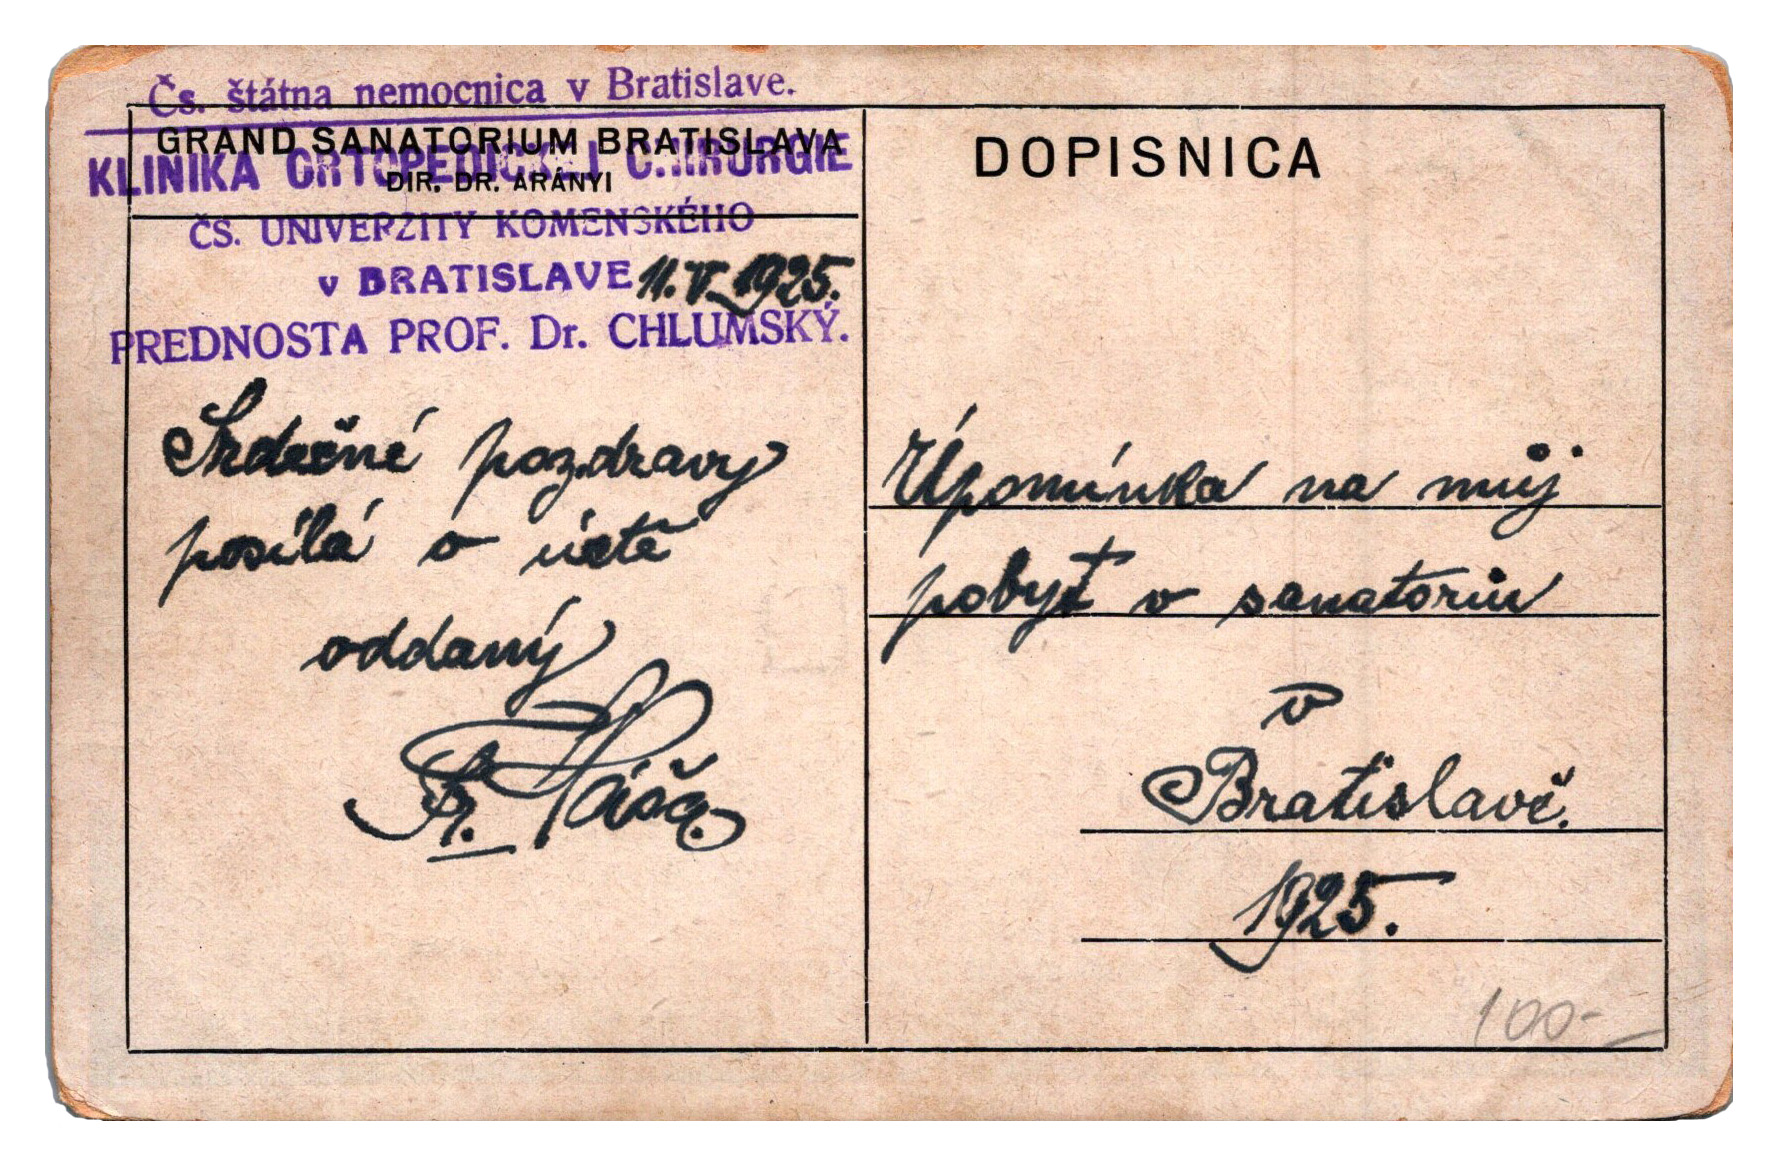 Čs. štátna nemocnica v Bratislave.
GRAND SANATORIUM BRATISLAVA
KLINIKA ORTOPEDICKEJ CHIRURGIE
DIR. DR. ARÁNYI
ČS. UNIVERZITY KOMENSKÉHO
v BRATISLAVE 11. V. 1925.
PREDNOSTA PROF. Dr. CHLUMSKÝ.
Srdečné pozdravy
posílá v úctě
oddaný
Fr.
DOPISNICA
Úpomínka na můj
pobyt v sanatoriu
v
Bratislavě.
1925.
100-